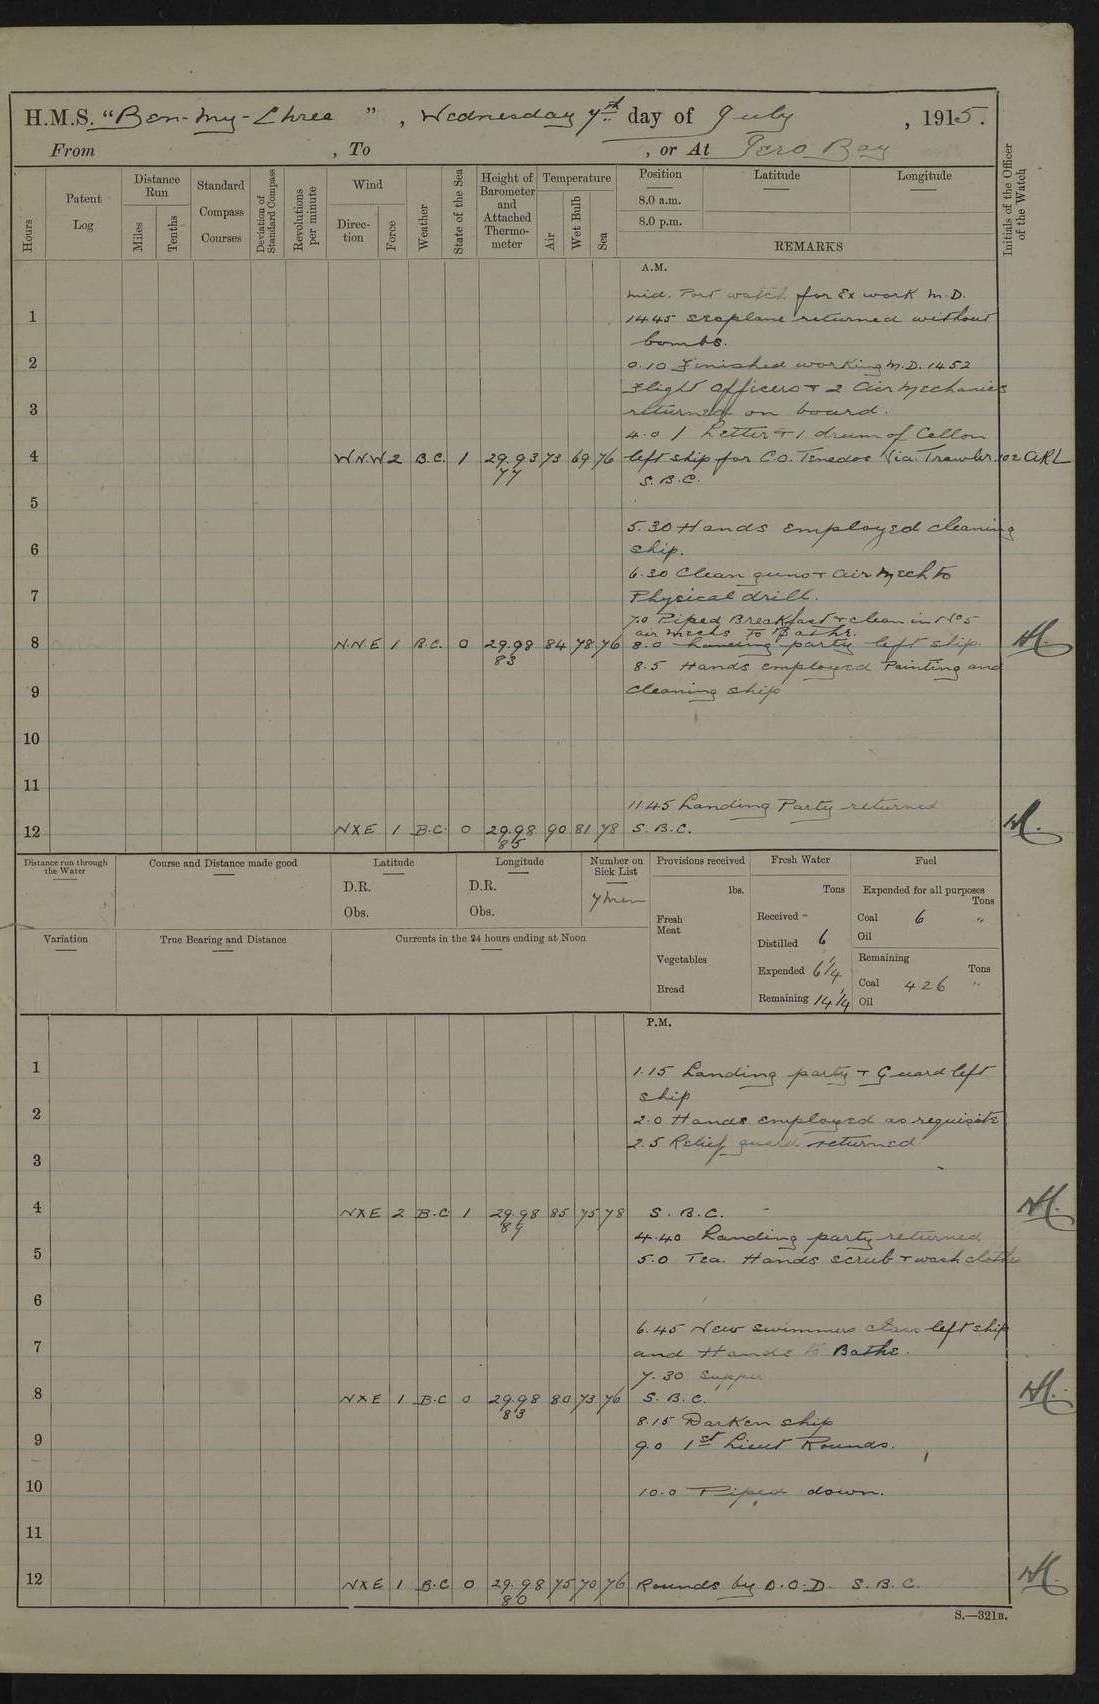 H.M.S. "Ben-my-Chree", Wednesday 7th day of July, 1915.
From , To , or At Iero Bay
Hours
Patent Log
Distance Run
Miles
Tenths
Standard Compass Courses
Deviation of Standard Compass
Revolutions per minute
Wind
Direction
Force
Weather
State of the Sea
Height of Barometer and Attached Thermometer
Temperature
Air
Wet Bulb
Sea
Position
8.0 a.m.
8.0 p.m.
Latitude
Longitude
REMARKS
Initials of the Officer of the Watch
A.M.
mid. Port watch for Ex work M.D.
1
1445 seaplane returned without
bombs.
2
0.10 Finished working M.D. 1452
Flight officers + 2 Air Mechanics
3
returned on board.
4.0 1 Letter + 1 drum of Cellon
4 W.N.W 2 B.C. 1 29.93 73 69 76 left ship for C.O. Tenedos Via Trawler 102 ARL
77 S.B.C.
5
5.30 Hands employed cleaning
6
ship.
6.30 Clean guns + Air Mech to
7
Physical drill.
7.0 Piped Breakfast + clean in Nº5
air mechs to Bathe.
8 N.N.E 1 B.C. 0 29.98 84 78 76 8.0 Landing party left ship.
83 8.5 Hands employed Painting and
9
cleaning ship
10
11
11.45 Landing Party returned
12 NXE 1 B.C. 0 29.98 90 81 78 S.B.C.
85
Distance run through the Water
Course and Distance made good
Latitude
D.R.
Obs.
Longitude
D.R.
Obs.
Number on Sick List
7 men
Provisions received
lbs.
Fresh Meat
Vegetables
Bread
Fresh Water
Tons
Received -
Distilled 6
Expended 6 1/4
Remaining 14 1/4
Fuel
Expended for all purposes
Tons
Coal 6 "
Oil
Remaining
Tons
Coal 426 "
Oil
Variation
True Bearing and Distance
Currents in the 24 hours ending at Noon
P.M.
1
1.15 Landing party + Guard left
ship
2
2.0 Hands employed as requisite
2.5 Relief guard returned
3
4 NXE 2 B.C 1 29.98 85 75 78 S.B.C.
89
4.40 Landing party returned
5
5.0 Tea. Hands scrub + wash clothes
6
6.45 New swimmers class left ship
7
and Hands to Bathe.
7.30 Supper
8 NXE 1 B.C 0 29.98 80 73 76 S.B.C.
83
8.15 Darken ship
9
9.0 1st Lieut Rounds.
10
10.0 Piped down.
11
12 NXE 1 B.C 0 29.98 75 70 76 Rounds by O.O.D. S.B.C.
80
S.—321B.